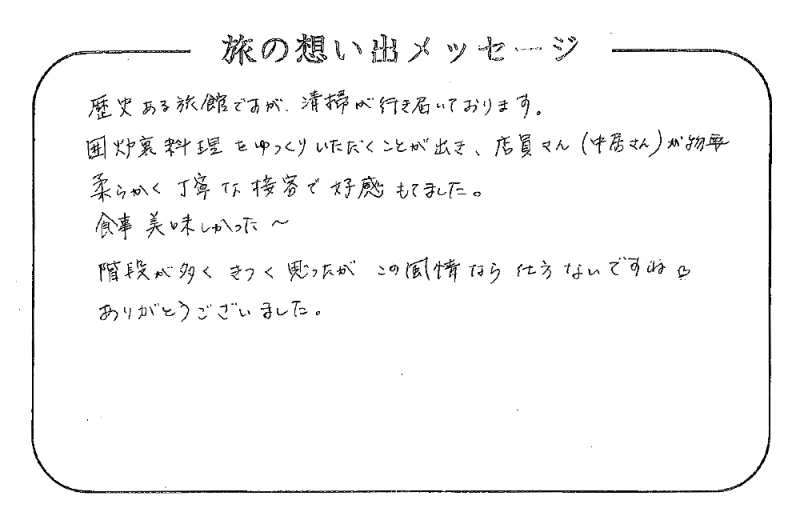 旅の想い出メッセージ
歴史ある旅館ですが、清掃が行き届いております。
囲炉裏料理をゆっくりいただくことが出き、店員さん(中居さん)が物腰
柔らかく丁寧な接客で好感もてました。
食事美味しかった～
階段が多くきつく思ったがこの風情なら仕方ないですね
ありがとうございました。